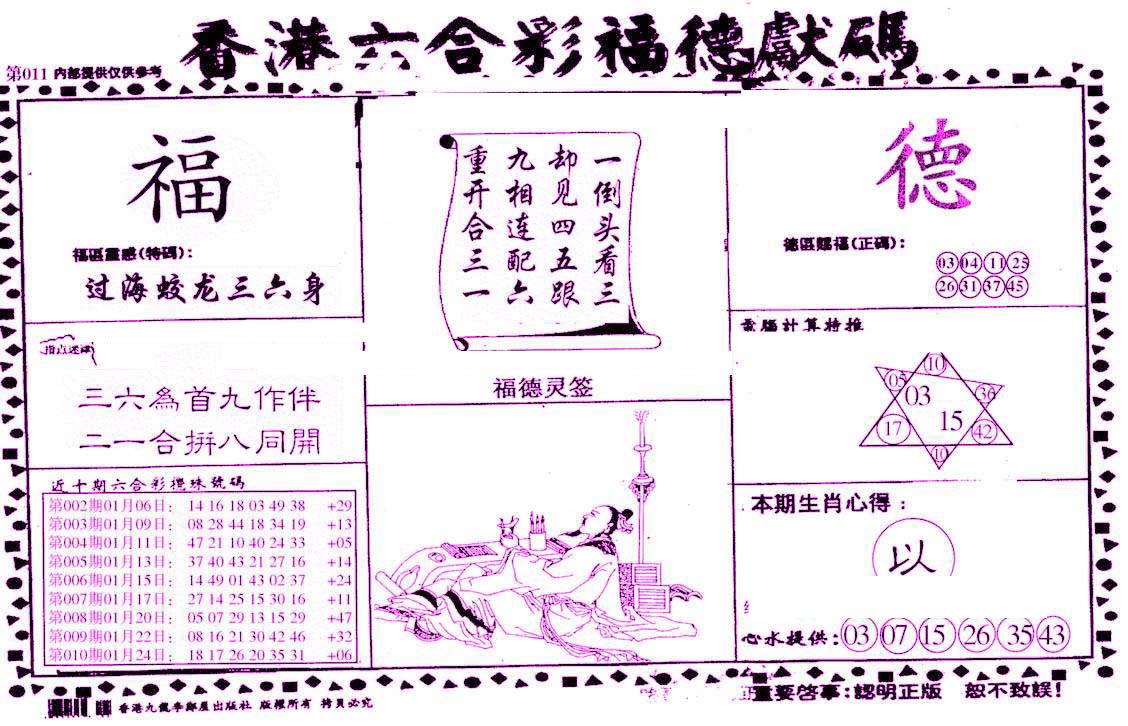 香港六合彩福德獻碼
第011 内部提供仅供参考
福
福區靈感(特碼):
过海蛟龙三六身
指点迷津
三六為首九作伴
二一合拼八同開
近十期六合彩攪珠號碼
第002期01月06日: 14 16 18 03 49 38 +29
第003期01月09日: 08 28 44 18 34 19 +13
第004期01月11日: 47 21 10 40 24 33 +05
第005期01月13日: 37 40 43 21 27 16 +14
第006期01月15日: 14 49 01 43 02 37 +24
第007期01月17日: 27 14 25 15 30 16 +11
第008期01月20日: 05 07 29 13 15 29 +47
第009期01月22日: 08 16 21 30 42 46 +32
第010期01月24日: 18 17 26 20 35 31 +06
一倒头看三
却见四五跟
九相连配六
重开合三一
福德灵签
德
德區賜福(正碼):
03 04 11 25
26 31 37 45
電腦計算特推
10
05 36
03
15
17 42
10
本期生肖心得:
以
心水提供: 03 07 15 26 35 43
重要啓事:認明正版 恕不致誤!
香港九龍李鄭屋出版社 版權所有 拷貝必究